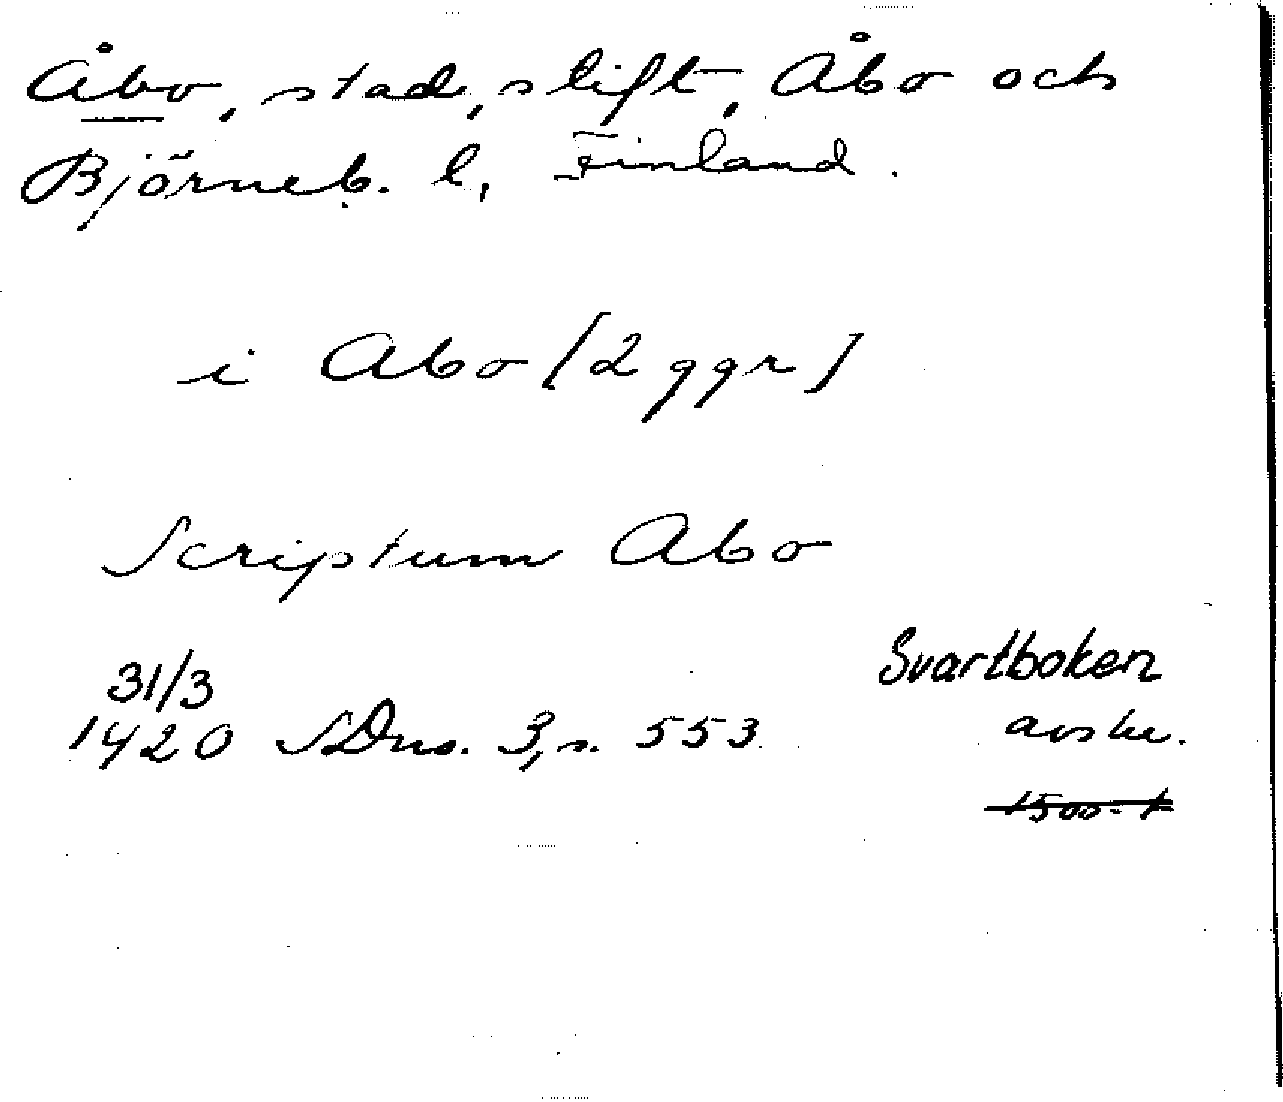 Åbo, stad, slift, Åbo och
Björneb. l, Finland.
i Abo [2 ggr]
Scriptum Abo
31/3
1420 SDns. 3, s. 553
Svartboken
avskr.
1500-t